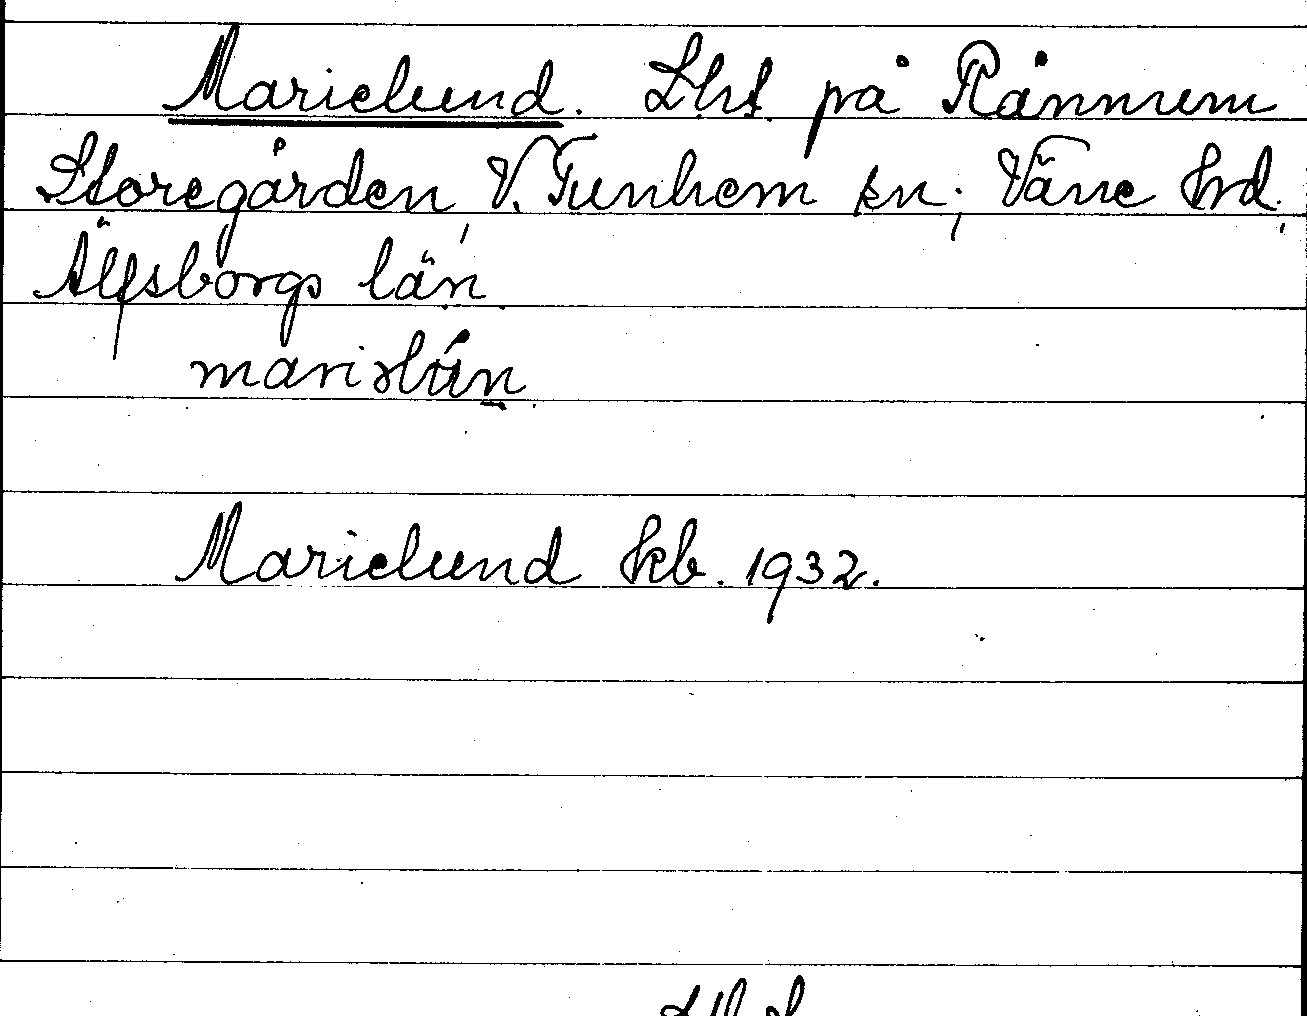 Marielund. Lht. på Rånnum
Storegården, V. Tunhem sn; Väne hd,
Älfsborgs län.
Marielund kb. 1932.